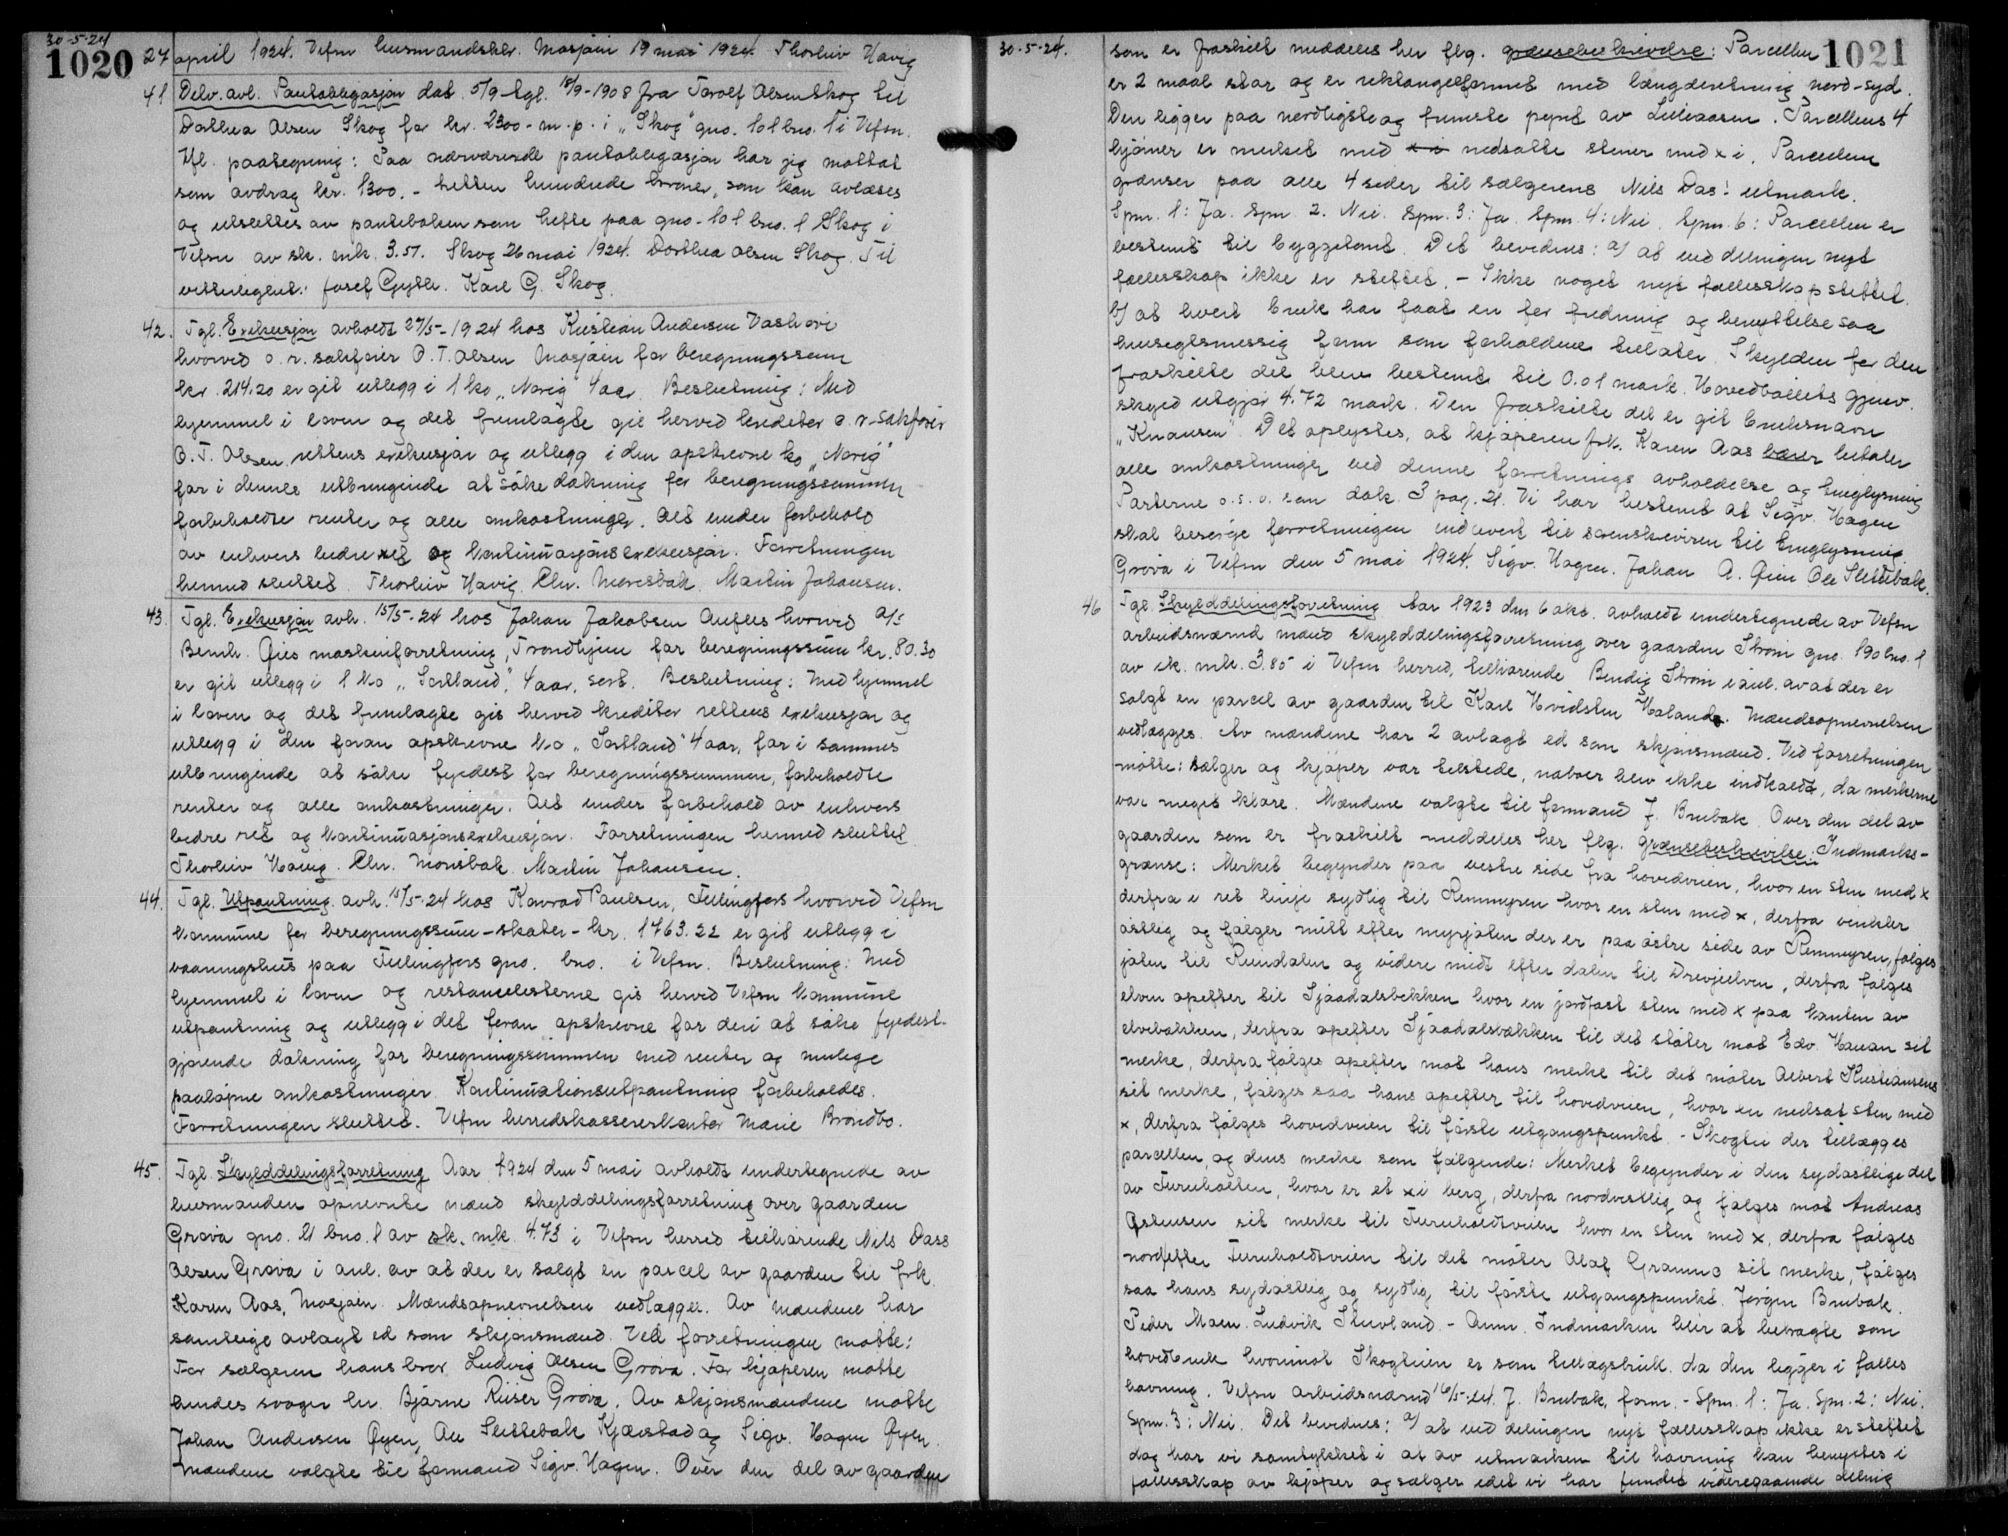 30-5-24
1020
27 april 1924. Vefsn lensmandsktr. Mosjøen 19 mai 1924. Thorleiv Havig
41 Delv. avl. Pantobligasjon dat. 5/9 - tgl. 18/9-1908 fra Torolf Olsen Skog til
Dorthea Olsen Skog for kr. 2300 - m. p. i "Skog" gno. 101 bno. 1 i Vefsn.
Hfl. paategning: Paa nærværende pantobligasjon har jeg mottat
som avdrag kr. 1300.- tretten hundrede kroner, som kan avlæses
og utslettes av panteboken som hefte paa gno. 101 bno. 1 Skog i
Vefsn av sk. mk. 3.57. Skog 26 mai 1924. Dorthea Olsen Skog. Til
vitterlighet: Josef Gytle. Karl G. Skog.
42. Tgl. Exekusjon avholdt 27/5-1924 hos Kristian Andersen
hvorved o. r. sakfører O. T. Olsen Mosjøen for beregningssum
kr. 214.20 er git utlegg i 1 ko "Norig" 4 aar. Beslutning: Med
hjemmel i loven og det fremlagte gis herved kreditor o. r. sakfører
O. T. Olsen rettens exekusjon og utlegg i den opskrevne ko "Norig"
for i dennes utbringende at söke dækning for beregningssummen
forbeholdte renter og alle omkostninger. Alt under forbehold
av enhvers bedre ret og kontinuasjonsexekusjon. Forretningen
hermed sluttet. Thorleiv Havig. Chr. Moresbak. Martin Johansen.
43. Tgl. Exekusjon avh. 15/5-24 hos Johan Jakobsen Aufles hvorved A/S
Bernh. Øies maskinforretning, Trondhjem for beregningssum kr. 80.30
er git utlegg i 1 ko "Sortland", 4 aar, sort. Beslutning: Med hjemmel
i loven og det fremlagte gis herved kreditor rettens exekusjon og
utlegg i den foran opskrevne ko "Sortland" 4 aar, for i sammes
utbringende at söke fyldest for beregningssummen, forbeholdte
renter og alle omkostninger. Alt under forbehold av enhvers
bedre ret og kontinuasjonsexekusjon. Forretningen hermed sluttet
Thorleiv Havig. Chr. Moresbak. Martin Johansen.
44. Tgl. Utpantning avh. 15/5-24 hos Konrad Paulsen, Fellingfors hvorved Vefsn
kommune for beregningssum - skater - kr. 1763.22 er git utlegg i
vaaningshus paa Fellingfors gno. bno. i Vefsn. Beslutning: Med
hjemmel i loven og restancelisterne gis herved Vefsn kommune
utpantning og utlegg i det foran opskrevne for deri at söke fyldest-
gjørende dækning for beregningssummen med renter og mulige
paaløpne omkostninger. Kontinuationsutpantning forbeholdes.
Forretningen sluttet. Vefsn herredskassererkontor Marie Brandbo.
45. Tgl. Skylddelingsforretning Aar 1924 den 5 mai avholdt undertegnede av
lensmanden opnevnte mænd skylddelingsforretning over gaarden
Grøva gno. 21 bno. 1 av sk. mk. 4.73 i Vefsn herred tilhørende Nils Dass
Olsen Grøva i anl. av at der er solgt en parcel av gaarden til frk.
Karen Aas, Mosjøen. Mændsopnevnelsen vedlægges. Av mændene har
samtlige avlagt ed som skjønsmænd. Ved forretningen møtte:
For sælgeren hans bror Ludvig Olsen Grøva. For kjøperen møtte
hendes svoger hr. Bjarne Riiser Grøva. Av skjønsmændene møtte
Johan Andersen Øyen, Ole Slettebak Kjærstad og Sigv. Hagen Øyen.
Mændene valgte til formand Sigv. Hagen. Over den del av gaarden
30-5-24.
1021
som er fraskilt meddeles her flg. grænsebeskrivelse: Parcellen
er 2 maal stor og er rektangelformet med længderetning nord-syd.
Den ligger paa nordligste og fremste pynt av Lilleaasen. Parcellens 4
hjørner er merket med x i nedsatte stener med x i. Parcellen
grænser paa alle 4 sider til sælgerens Nils Das' utmark.
Spm. 1: Ja. Spm 2. Nei. Spm. 3: Ja. Spm. 4: Nei. Spm. 6: Parcellen er
bestemt til byggetomt. Det bevidnes: a) at ved delingen nyt
fællesskap ikke er stiftet. - Ikke noget nyt fællesskap stiftet.
b) at hvert bruk har faat en for fredning og benyttelse saa
hensigtsmessig form som forholdene tillater. Skylden for den
fraskilte del blev bestemt til 0.01 mark. Hovedbölets gjenv.
skyld utgjør 4.72 mark. Den fraskilte del er git bruksnavn
"Knausen". Det oplystes, at kjøperen frk. Karen Aas bærer betaler
alle omkostninger ved denne forretnings avholdelse og tinglysning
Parterne o. s. v. som dok. 3 pag. 21. Vi har bestemt at Sigv. Hagen
skal besørge forretningen indlevert til sorenskriveren til tinglysning
Grøva i Vefsn den 5 mai 1924. Sigv. Hagen. Johan A. Øien Ole Slettebak.
46 Tgl. Skylddelingsforretning Aar 1923 den 6 okt. avholdt undertegnede av Vefsn
arbeidsnævnd mænd skylddelingsforretning over gaarden Strøm gno. 190 bno. 1
av sk. mk. 3.85 i Vefsn herred, tilhørende Bendig Strøm i anl. av at der er
solgt en parcel av gaarden til Karl Hvidsten Haland. Mændsopnevnelsen
vedlægges. Av mændene har 2 avlagt ed som skjønsmænd. Ved forretningen
møtte: Sælger og kjøper var tilstede, naboer blev ikke indkaldt, da merkerne
var meget klare. Mændene valgte til formand J. Brubak. Over den del av
gaarden som er fraskilt meddeles her flg. grænsebeskrivelse: Indmarks-
grænse: Merket begynder paa vestre side fra hovedveien, hvor en sten med x
derfra i ret linje sydlig til Remmyren hvor en sten med x, derfra vinkler
østlig og følger midt efter myrjölen der er paa østre side av Remmyren, følges
jölen til Rundalen og videre midt efter dalen til Drevjeelven, derfra følges
elven opefter til Sjaadalsbekken hvor en jordfast sten med x paa kanten av
elvebakken, derfra opefter Sjaadalsbækken til det støter mot Edv. Hauan sit
merke, derfra følges opefter mot hans merke til det møter Albert Kristiansens
sit merke, følges saa hans opefter til hovedveien, hvor en nedsat sten med
x, derfra følges hovedveien til første utgangspunkt. - Skoglii der tillægges
parcellen, og dens merke som følgende: Merket begynder i den sydøstlige del
av Furuholten, hvor er et x i berg, derfra nordvestlig og følges mot Andreas
Østensen sit merke til Furuholdtveien hvor en sten med x, derfra følges
nordefter Furuholdtveien til det møter Olaf Grannes sit merke, følges
saa hans sydøstlig og sydlig til første utgangspunkt. Jørgen Brubak.
Peder Moen. Ludvik Stuvland. - Anm. Indmarken blir at betragte som
hovedbruk hvorimot Skoglien er som tillægsbruk. da den ligger i fælles
havning. Vefsn arbeidsnævnd 16/5-24 J. Brubak, form. - Spm. 1: Ja. Spm. 2: Nei.
Spm. 3: Nei. Det bevidnes: a) at ved delingen nyt fællesskap ikke er stiftet
dog har vi samtykket i at av utmarken til havning kan benyttes i
fællesskap av kjøper og sælger idet vi har fundet videregaaende deling